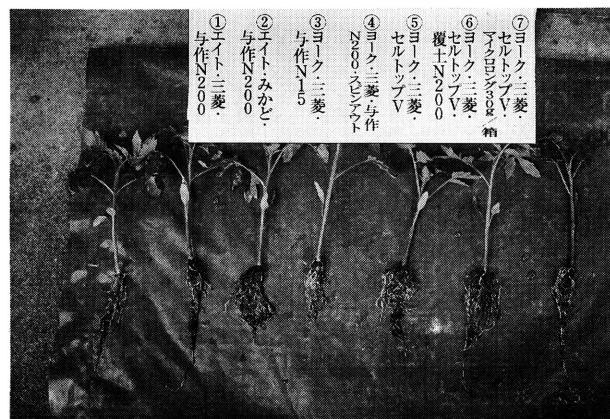 ⑦ヨーク・三菱・
セルトップV・
マイクロロング30g/箱
⑥ヨーク・三菱・
セルトップV・
覆土N200
⑤ヨーク・三菱・
セルトップV
④ヨーク・三菱・与作
N200・スピンアウト
③ヨーク・三菱・
与作N15
②エイト・みかど・
与作N200
①エイト・三菱・
与作N200